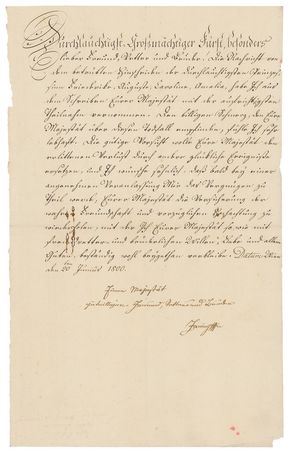 Durchlauchtigst-Großmächtiger Fürst, besonders
lieber Freund, Vetter und Bruder. Die Nachricht von
dem betrübten Hinscheiden der Durchlauchtigsten Prinzes-
sinn Friederike, Auguste, Caroline, Amalia, habe Ich aus
dem Schreiben Eurer Majestät mit der aufrichtigsten
Theilnahme vernommen. Den billigen Schmerz, den Eure
Majestät über diesen Todfall empfinden, fühle Ich sehr
lebhaft. Die gütige Vorsicht wolle Eurer Majestät den
erlittenen Verlust durch andere glückliche Ereignisse
ersetzen, und Ich wünsche herzlich, daß bald bey einer
angenehmen Veranlassung Mir das Vergnügen zu
Theil werde, Eurer Majestät die Versicherung der
wahren Freundschaft und vorzüglichen Hochachtung zu
wiederholen, mit der Ich Eurer Majestät so, wie mit
freund-vetter- und brüderlichem Willen, Liebe und allem
Guten, beständig wohl beygethan verbleibe. Datum Wien
den 20ten Junius 1800.
Eurer Majestät
gutwilliger Freund, Vetter und Bruder
Franz